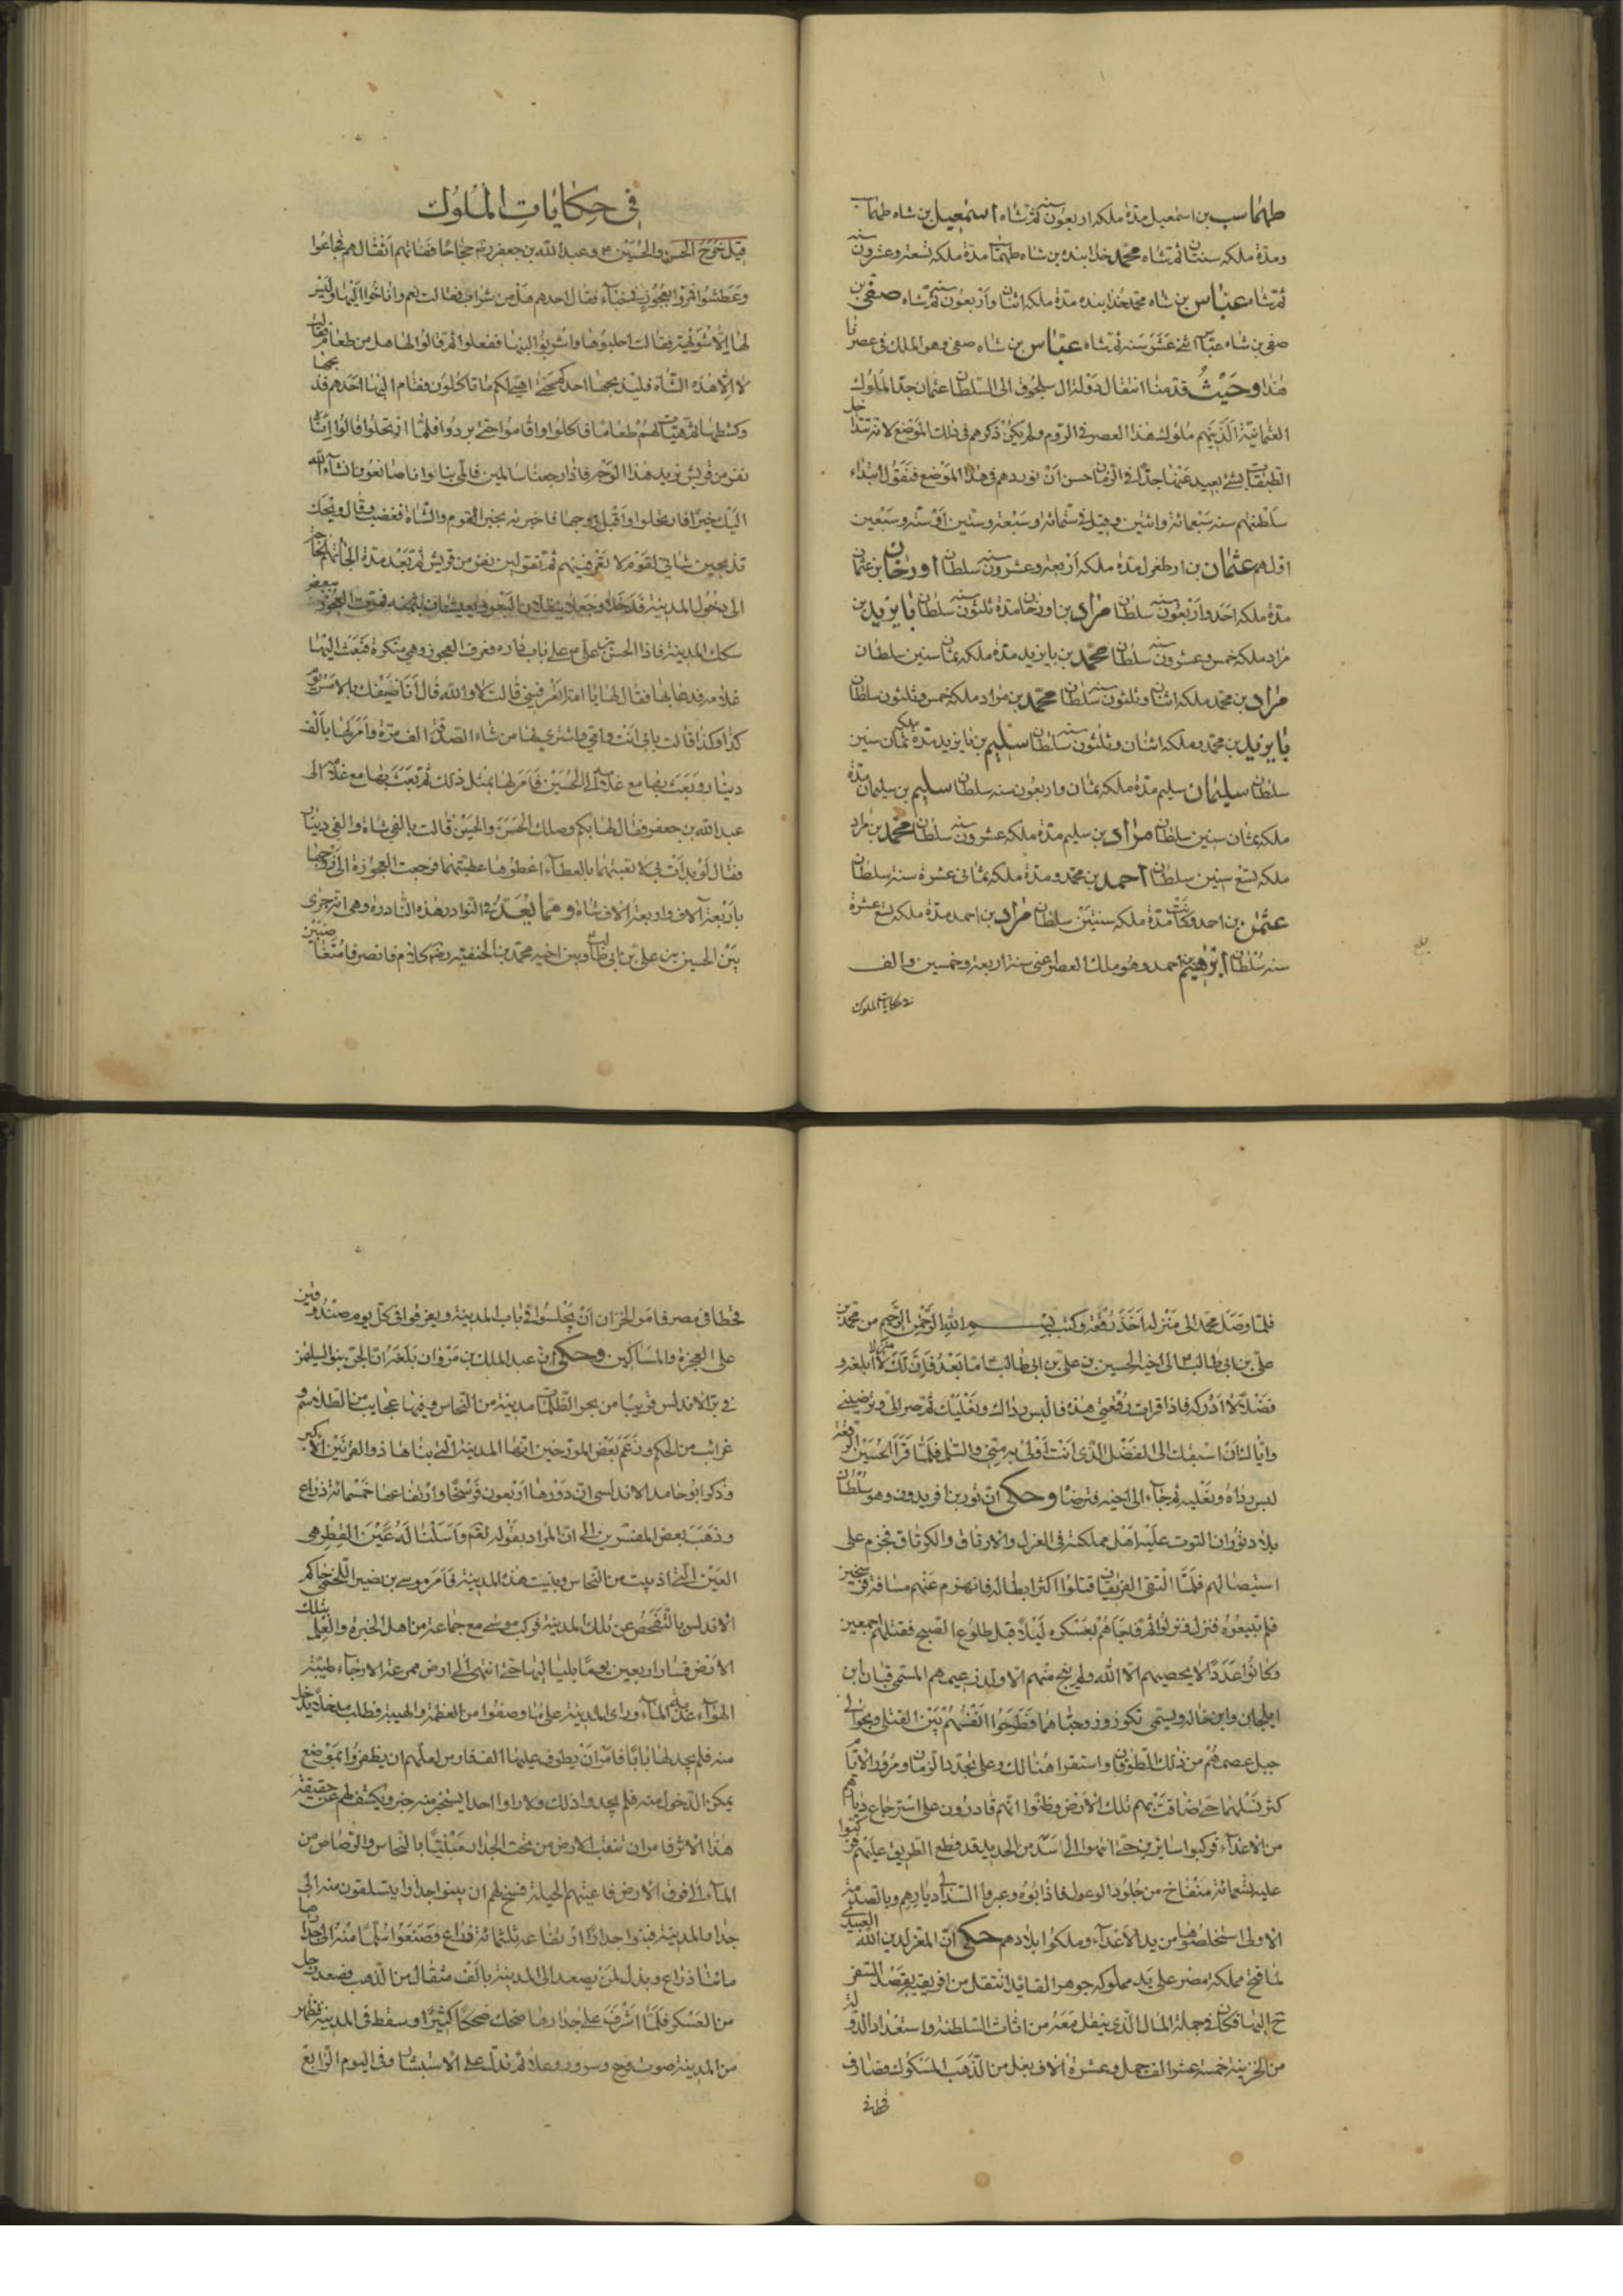 طهماسب بن اسمعيل مدة ملكه اربعون سنه ثم شاه اسمعيل بن شاه طهماسب
ومدة ملكه سنتان ثم شاه محمد خدابنده بن شاه طهماسب مدة ملكه تسعة وعشرون سنه
ثم شاه عباس بن شاه محمد خدابنده مدة ملكه اثنان وأربعون سنه ثم شاه صفى بن
صفى بن شاه عباس اثنى عشر سنه ثم شاه عباس بن شاه صفى وهو الملك فى عصرنا
هذا وحيث قدمنا انتقال دولة ال سلجوق الى السلطان عثمان جد الملوك
العثمانية الذينهم ملوك هذا العصر فى الروم ولم يكن ذكرهم فى ذلك الموضع لانه تتداخل
الطبقات بشئ بعيد عنها جدا فى الزمان حسن أن نوردهم فى هذا الموضع فنقول ابتداء
سلطنتهم سنه سبعمائة واثنين وقيل فى ستمائة وسبعة وستين أو ستة وسبعين
اولهم عثمان بن ارطغرل مدة ملكه أربعة وعشرون سنه سلطان اورخان بن عثمان
مدة ملكه احد وأربعون سنه سلطان مراد بن اورخان مدة ثلثون سنه سلطان بايزيد بن
مراد ملكه خمس وعشرون سنه سلطان محمد بن بايزيد مدة ملكه ثمان سنين سلطان
مراد بن محمد ملكه اثنان وثلثون سنه سلطان محمد بن مراد ملكه خمس وثلثون سلطان
بايزيد بن محمد وملكه اثنان وثلثون سنه سلطان سليم بن بايزيد مدة ملكه ثمان سنين
سلطان سليمان سليم مدة ملكه ثمان واربعون سنه سلطان سليم بن سليمان مدة
ملكه ثمان سنين سلطان مراد بن سليم مدة ملكه عشرون سنه سلطان محمد بن مراد
ملكه تسع سنين سلطان احمد بن محمد ومدة ملكه ثمانى عشرة سنة سلطان
عثمن بن احمد وكانت مدة ملكه سنتين سلطان مراد بن احمد مدة ملكه سبع عشرة
سنه سلطان ابرهيم بن احمد وهو ملك العصر اعنى سنة اربعة وخمسين والف
فى حكايات الملوك
فى حكايات الملوك
قيل خرج الحسن والحسين ع وعبد الله بن جعفر رضه حجاجا ففاتهم أثقالهم فجاعوا
وعطشوا فمروا بعجوز فى خباء فقال احدهم هل من شراب فقالت نعم واناخوا اليها وليس
لها الا شويهة فقالت احلبوها واشربوا لبنها ففعلوا ثم قالوا لها هل من طعام فقالت
لا الا هذه الشاة فليذبحها احدكم حتى اهيئ لكم ما تاكلون فقام اليها احدهم فذبحها
وكشطها ثم هيأت لهم طعاما فاكلوا واقاموا حتى بردوا فلما ارتحلوا قالوا انا
نفر من قريش نريد هذا الوجه فاذا رجعنا سالمين فالمى بنا فانا صانعون ان شاء الله
اليك خيرا فارتحلوا وأقبل زوجها فاخبرته بخبر القوم والشاة فغضب وقال ويحك
تذبحين شاتى لقوم لا تعرفينهم ثم تقولين نفر من قريش ثم بعد مدة الجاتهم الحاجة
الى دخول المدينة فدخلا وجعلا ينقلان البعر ويعيشان بثمنه فمرت العجوز ببعض
سكك المدينة فاذا الحسن بن على ع على باب داره فعرف العجوز وهى منكرة فبعث اليها
غلامه فدعا بها فقال لها يا امة اتعرفيننى قالت لا والله قال أنا ضيفك بالامس يوم
كذا وكذا قالت بابى انت وامى فاشترى لها من شاء الصدقة الف مرة وأمر لها بألف
دينار وبعث بها مع غلامه الى الحسين فامر لها بمثل ذلك ثم بعث بها مع غلامه الى
عبد الله بن جعفر فقال لها بكم وصلك الحسن والحسين قالت بالفى شاة والفى دينار
فقال لو بدأت بى لاتعبتهما بالعطاء اعطوها عطيتهما فرجعت العجوزة الى زوجها
باربعة آلاف واربعة الاف شاة ومما يعد فى النوادر هذه النادرة وهى انه جرى
بين الحسين بن على بن ابى طالب وبين اخيه محمد بن الحنفية رضه كلام فانصرفا متغاضبين
فلما وصل محمد الى منزله أخذ رقعة وكتب بسم الله الرحمن الرحيم من محمد بن
على بن ابى طالب الى اخيه الحسين بن على بن ابى طالب اما بعد فان لك شرفا لا ابلغه و
فضلا لا ادركه فاذا قرات رقعتى هذه فالبس رداك ونعليك ثم صر الى وترضينى
واياك أن اسبقك الى الفضل الذى انت اولى به منى والسلم فلما قرأ الحسين الرقعة
لبس رداه ونعليه ثم جاء الى اخيه فترضاه وحكى ان تور بن افريدون وهو سلطان
بلاد توران التوت عليه أهل مملكته فى الغزل والارقاق والكرتاق فجزم على
استيصالهم فلما التقى الفريقان قتلوا اكثر ابطاله فانهزم عنهم مسافة فرسخين
فلم يتبعوه فنزل ونزلوا ثم فاجاهم بعسكره ليلا قبل طلوع الصبح فقتلهم اجمعين
وكانوا عددا لا يحصيهم الا الله ولم ينج منهم الا ولد زعيمهم المسمى قيان ابن
ايلخان وابن خاله ويسمى تكوز وزوجتاهما فطرحوا انفسهم بين القتلى ويحوا الى
جبل عصمهم من ذلك الطوفان واستقرا هنالك وعلى تجدد الزمان ومرور الايام
كثر نسلهما حتى ضاقت بهم تلك الأرض وظنوا انهم قادرون على استرجاع ديارهم
من الاعداء فركبوا سايرين حتى انتهوا الى سد من الحديد قد قطع الطريق عليهم فركبوا
عليه تسعمائة منفاخ من جلود الوعول فاذابوه وعبروا السد الى ديارهم وبالصدمة
الاولى استخلصوها من يد الاعداء وملكوا بلادهم حكى ان المعز لدين الله العبيدى
لما فتح مملكة مصر على يد مملوكه جوهر القايد انتقل من افريقيه بقصد السفر
ح اليها فكان فى جملة المال الذى ينقل معه من اثاث السلطنة واستعداد الدولة
من الخزينة خمسة عشر الف جمل وعشرة الاف بغل من الذهب المسكوك فصادف
قحطا فى
قحطا فى مصر فامر الخزان أن يجلسوا فى باب المدينة ويفرقوا فى كل يوم صندوقين
على العجزة والمساكين وحكى ان عبد الملك بن مروان بلغه ان الجن بنوا لسليمن
فى بر الاندلس قريبا من بحر الظلمات مدينة من النحاس وفيها عجايب من الطلاسم و
غرائب من الحكم وزعم بعض المورخين انها المدينة التى بناها ذو القرنين الاكبر
وذكر ابو حامد الاندلسى ان دورها أربعون فرسخا وارتفاعها خمسمائة ذراع
وذهب بعض المفسرين الى ان المراد بقوله تعم وأسلنا له عين القطر هى
العين التى اذيبت من النحاس وبنيت هذه المدينة فامر موسى بن نضير اللخمى حاكم
الاندلس بالتفحص عن تلك المدينة فركب موسى مع جماعة من اهل الخبرة والعلم بتلك
الأرض فسار اربعين يوما بلياليها حتى انتهى الى ارض ممرعة الارجاء طيبة
الهواء عذبة الماء وراى المدينة على ما وصفوا من العظمة والهيبة فطلب مدخلا يدخل
منه فلم يجد لها بابا فامر أن يطوف عليها الف فارس لعلهم ان يظفروا بموضع
يمكن الدخول منه فلم يجدوا ذلك ولا راوا احدا يستخبر منه خبر ويكشف لهم عن حقيقة
هذا الاثر فامر ان تنقب الارض من تحت الجدار مبنيا بالنحاس والرصاص من
الماء الى فوق الارض فاعيتهم الحيلة فسنح لهم ان يبنوا جدارا يتسلقون منه الى
جدار المدينة فبنوا جدارا ارتفاعه ثلثمائة ذراع وصنعوا سلما منه الى جدارها
مائتا ذراع وبذل لمن يصعد الى المدينة بالف مثقال من الذهب فصعد رجل
من العسكر فلما أشرف على جدارها ضحك ضحكا كثيرا وسقط فى المدينة فظهر
من المدينة صوت فرح وسرور وعلاه ثم تدل على الاستبشار وفى اليوم الرابع